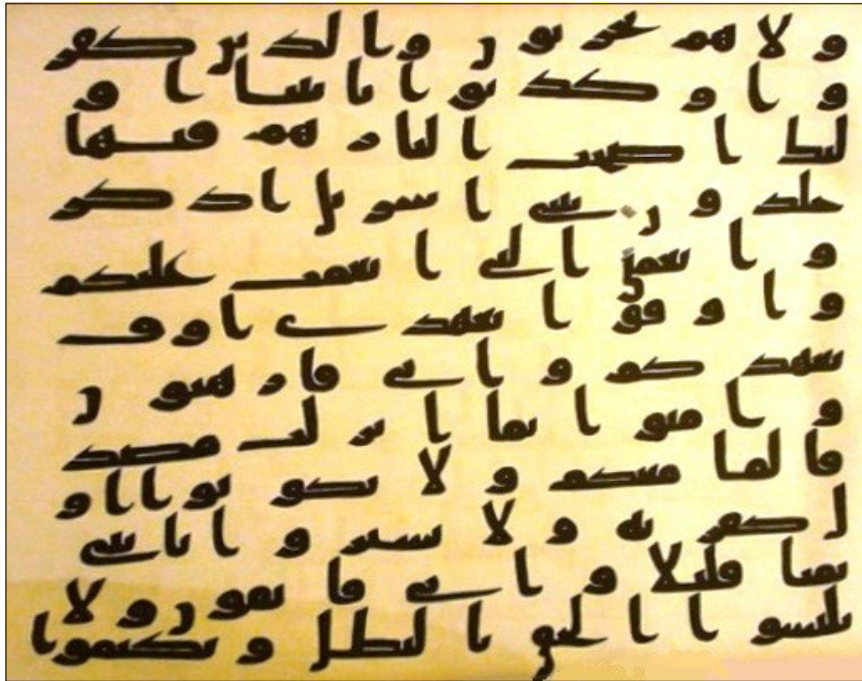 ولا هم يحزنون والذين كفر
وا وكذبوا بايتنا او
ليك اصحب النار هم فيها
خلدون يبني اسريل اذكر
وا نعمتي التي انعمت عليكم
واوفوا بعهدي اوف
بعهدكم وايي فارهبون
وامنوا بما انزلت مصد
قا لما معكم ولا تكونوا او
ل كفر به ولا تشتروا بايتي
ثمنا قليلا وايي فاتقون ولا
تلبسوا الحق بالبطل وتكتموا